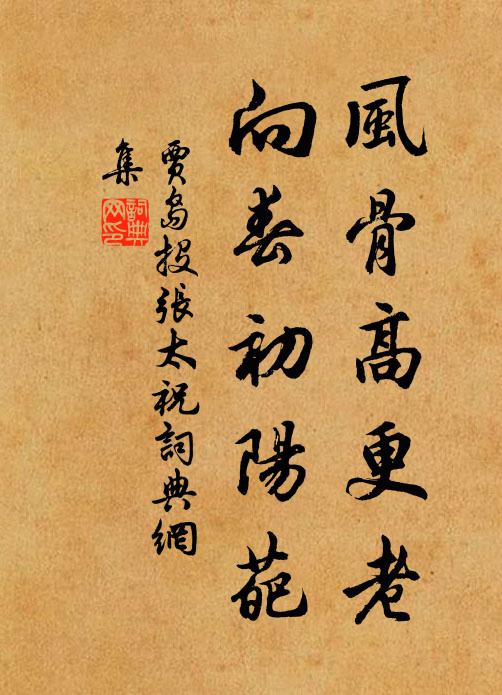 風骨高更老
向春初陽葩
賈島投張太祝詞典網
集
詞典
网印